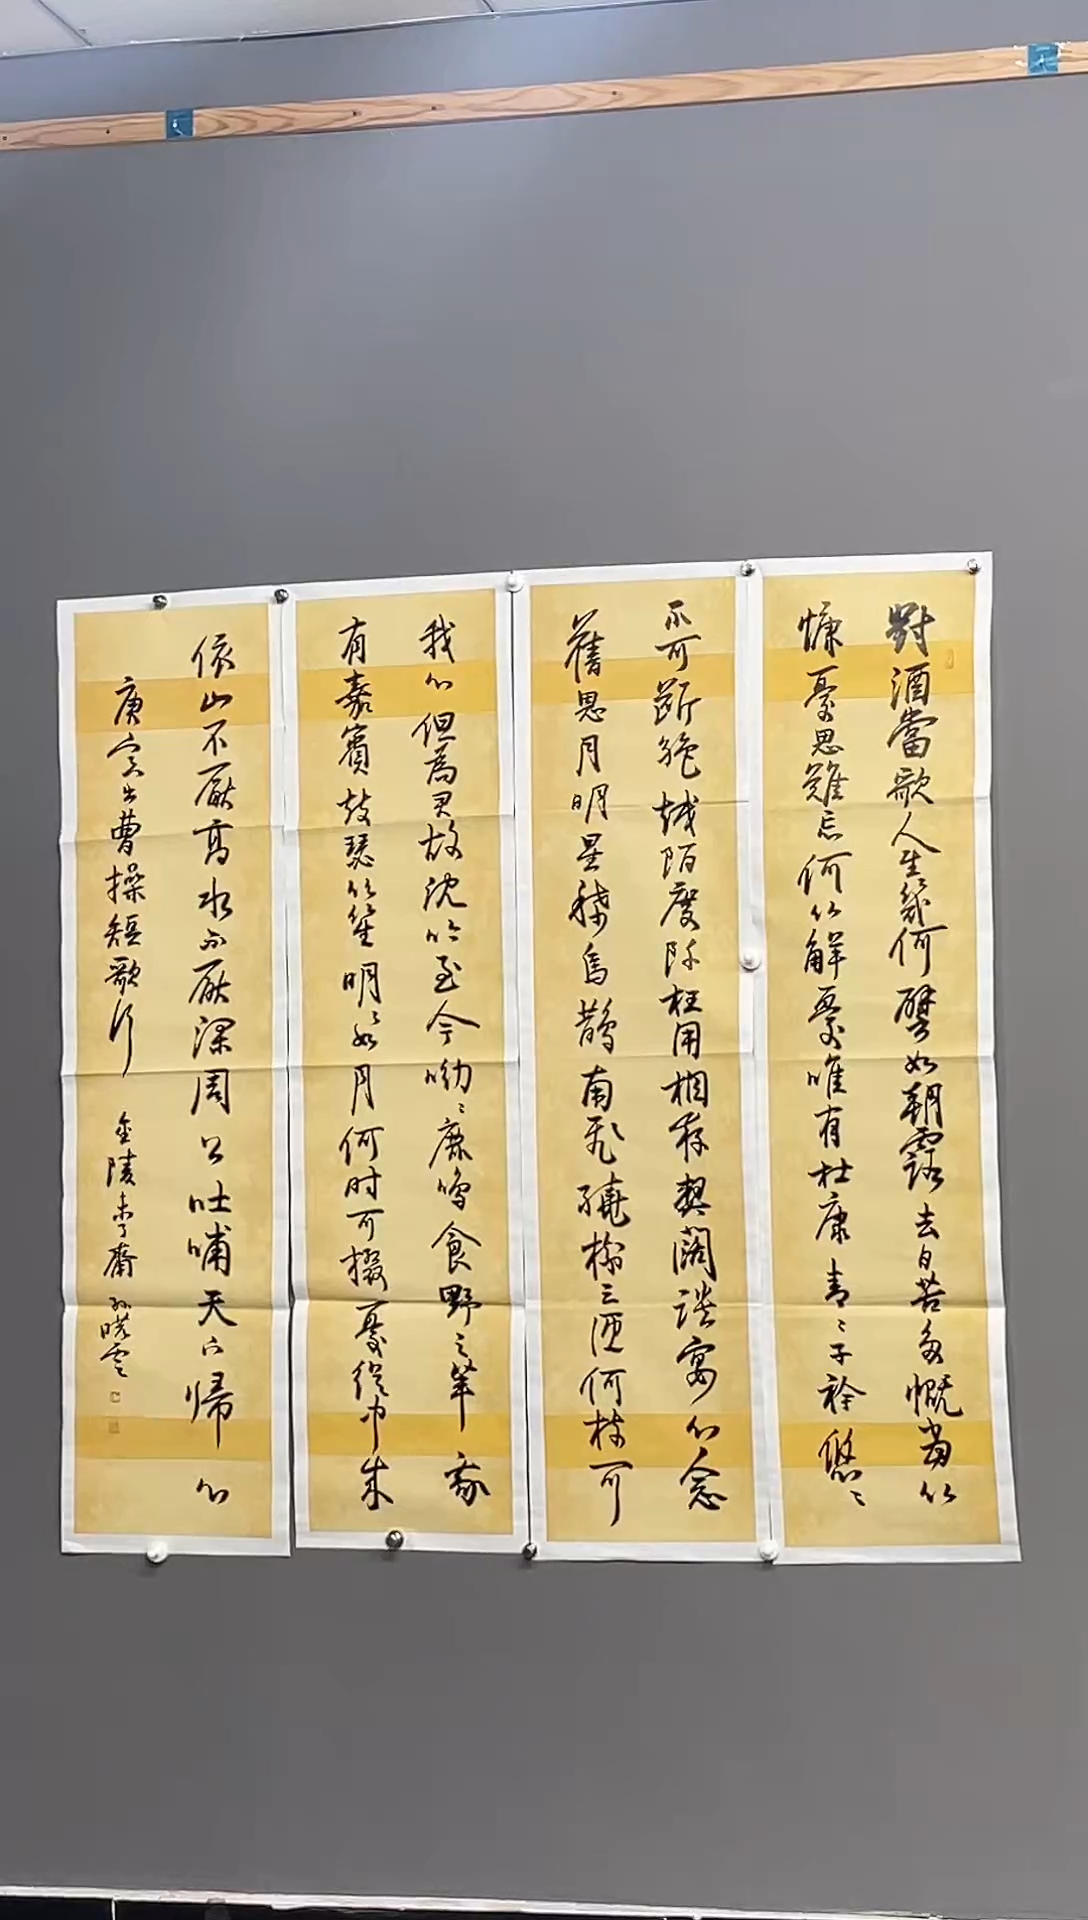 對酒當歌人生幾何譬如朝露去日苦多慨當以
慷憂思難忘何以解憂唯有杜康青〻子衿悠〻
不可斷絶越陌度阡枉用相存契闊談宴心念
舊恩月明星稀烏鵲南飛繞樹三匝何枝可
我心但為君故沈吟至今呦〻鹿鳴食野之苹我
有嘉賓鼓瑟吹笙明〻如月何时可掇憂從中来
依山不厭高水不厭深周公吐哺天下歸心
庚寅書曹操短歌行 金陵未了齋 孫曉雲